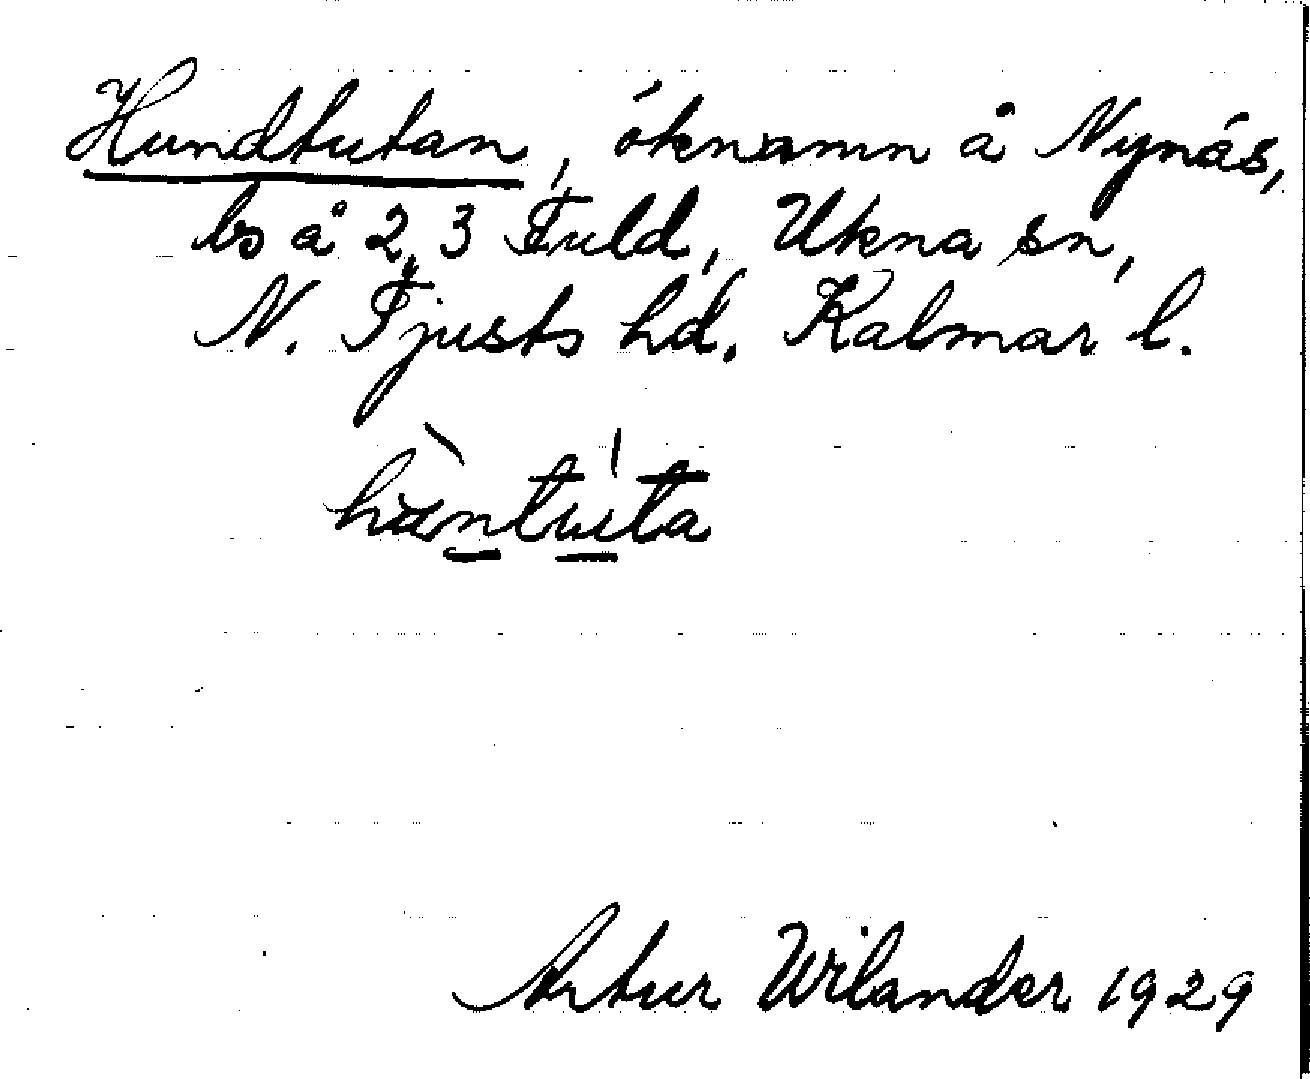 Hundtutan, öknamn å Nynäs,
bs å 2, 3 Fuld, Ukna sn,
N. Tjusts hd. Kalmar l.
hàntúta
Artur Wilander 1929